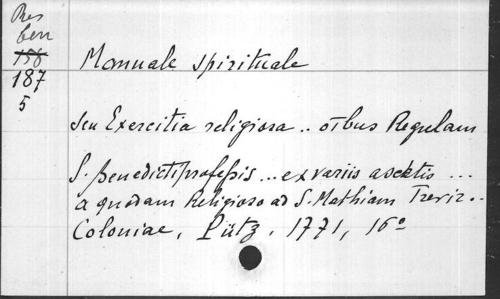 Res
ben
156
187
5
Manuale spirituale
seu Exercitia religiosa .. oībus Regulam
S. Benedicti professis ... ex variis ascetis ...
a quodam Religioso ad S. Mathiam Trevir..
Coloniae, Pütz, 1771, 16°